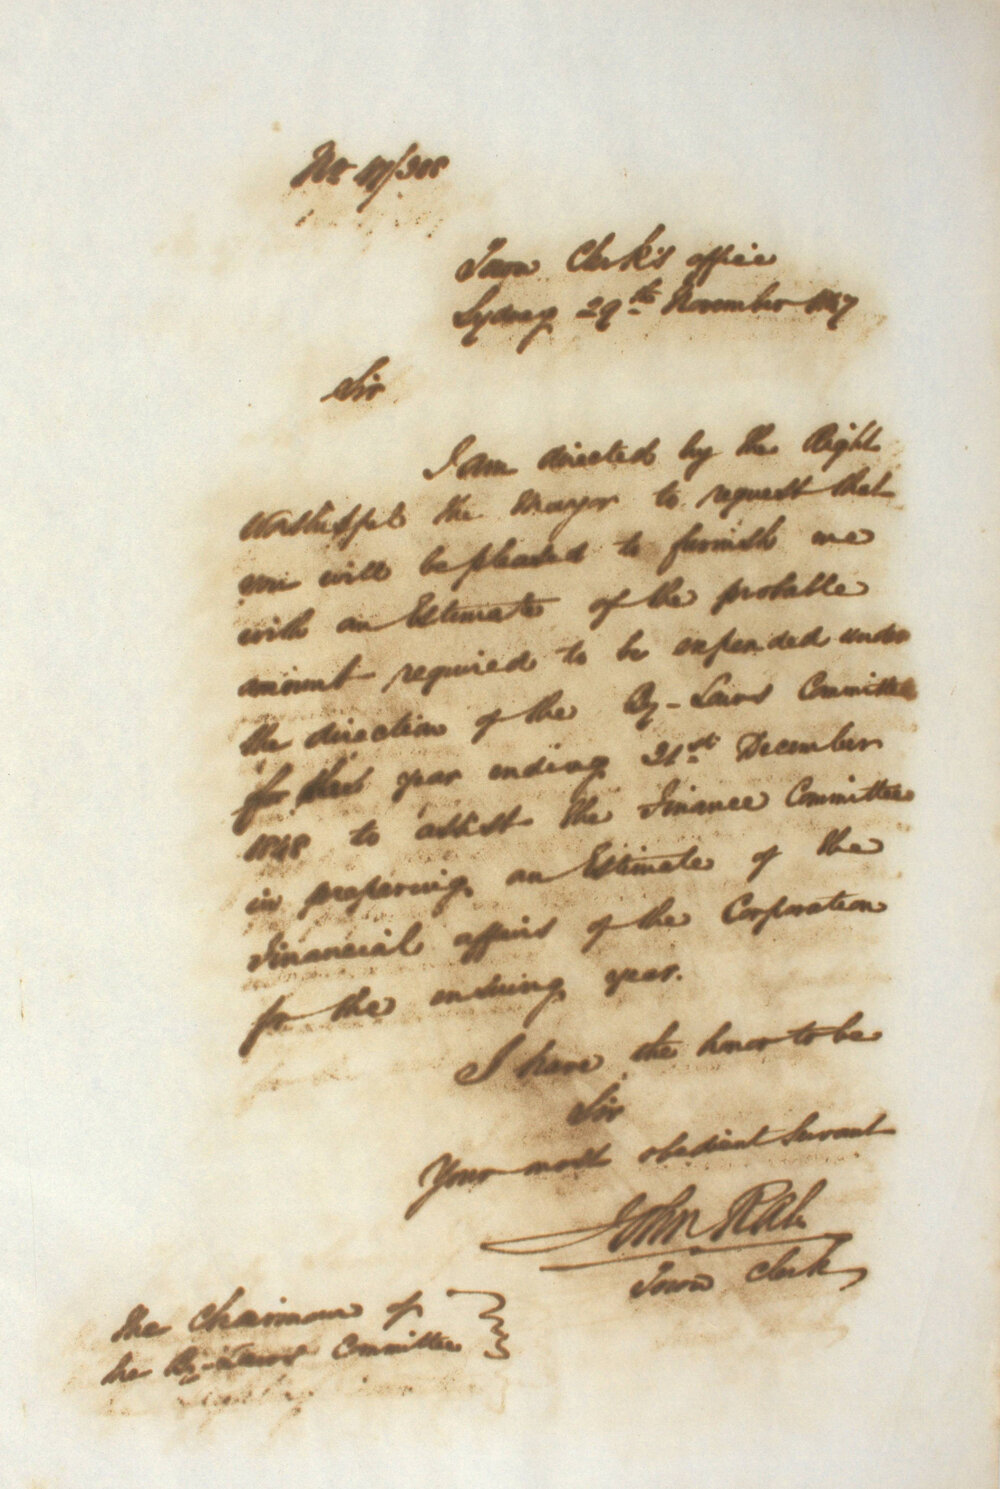 No 47/308
Town Clerk's office
Sydney 29th November 1847
Sir
I am directed by the Right
Worshipful the Mayor to request that
you will be pleased to furnish me
with an Estimate of the probable
amount required to be expended under
the direction of the By-Laws Committee
for the year ending 31st December
1848 to assist the Finance Committee
in preparing an Estimate of the
Financial affairs of the Corporation
for the ensuing year.
I have the honor to be
Sir
Your most obedient Servant
John Rae
Town Clerk
The Chairman of
the By-Laws Committee